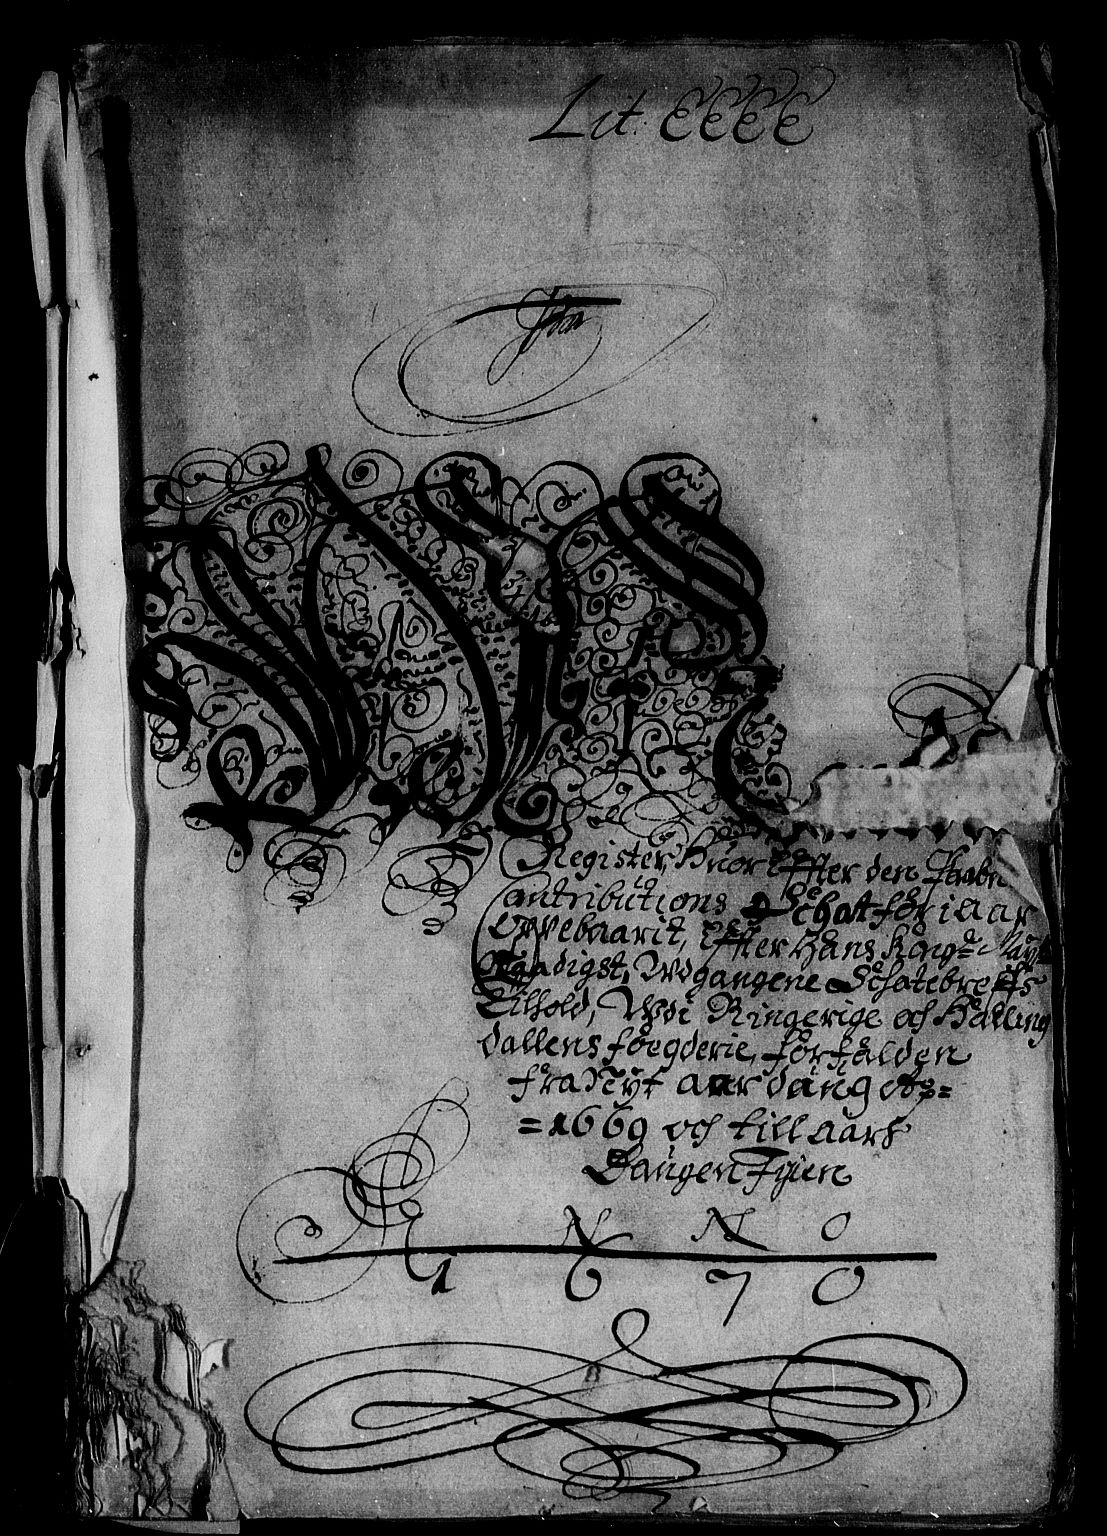 Lit: EEEE
Register, Huor Effter den
Contributions Schat för i aar
Oppebaarit, Effter Hans Kong: May:
Naadigst, Wdgangene Schatebreffs
Jnhold, Wdi Ringerige och Halling
dallens föegderie, förfalden
fra Nyt aar dang Ao:=
=1669 och till aars
Daugen Igien
ANNO
1670